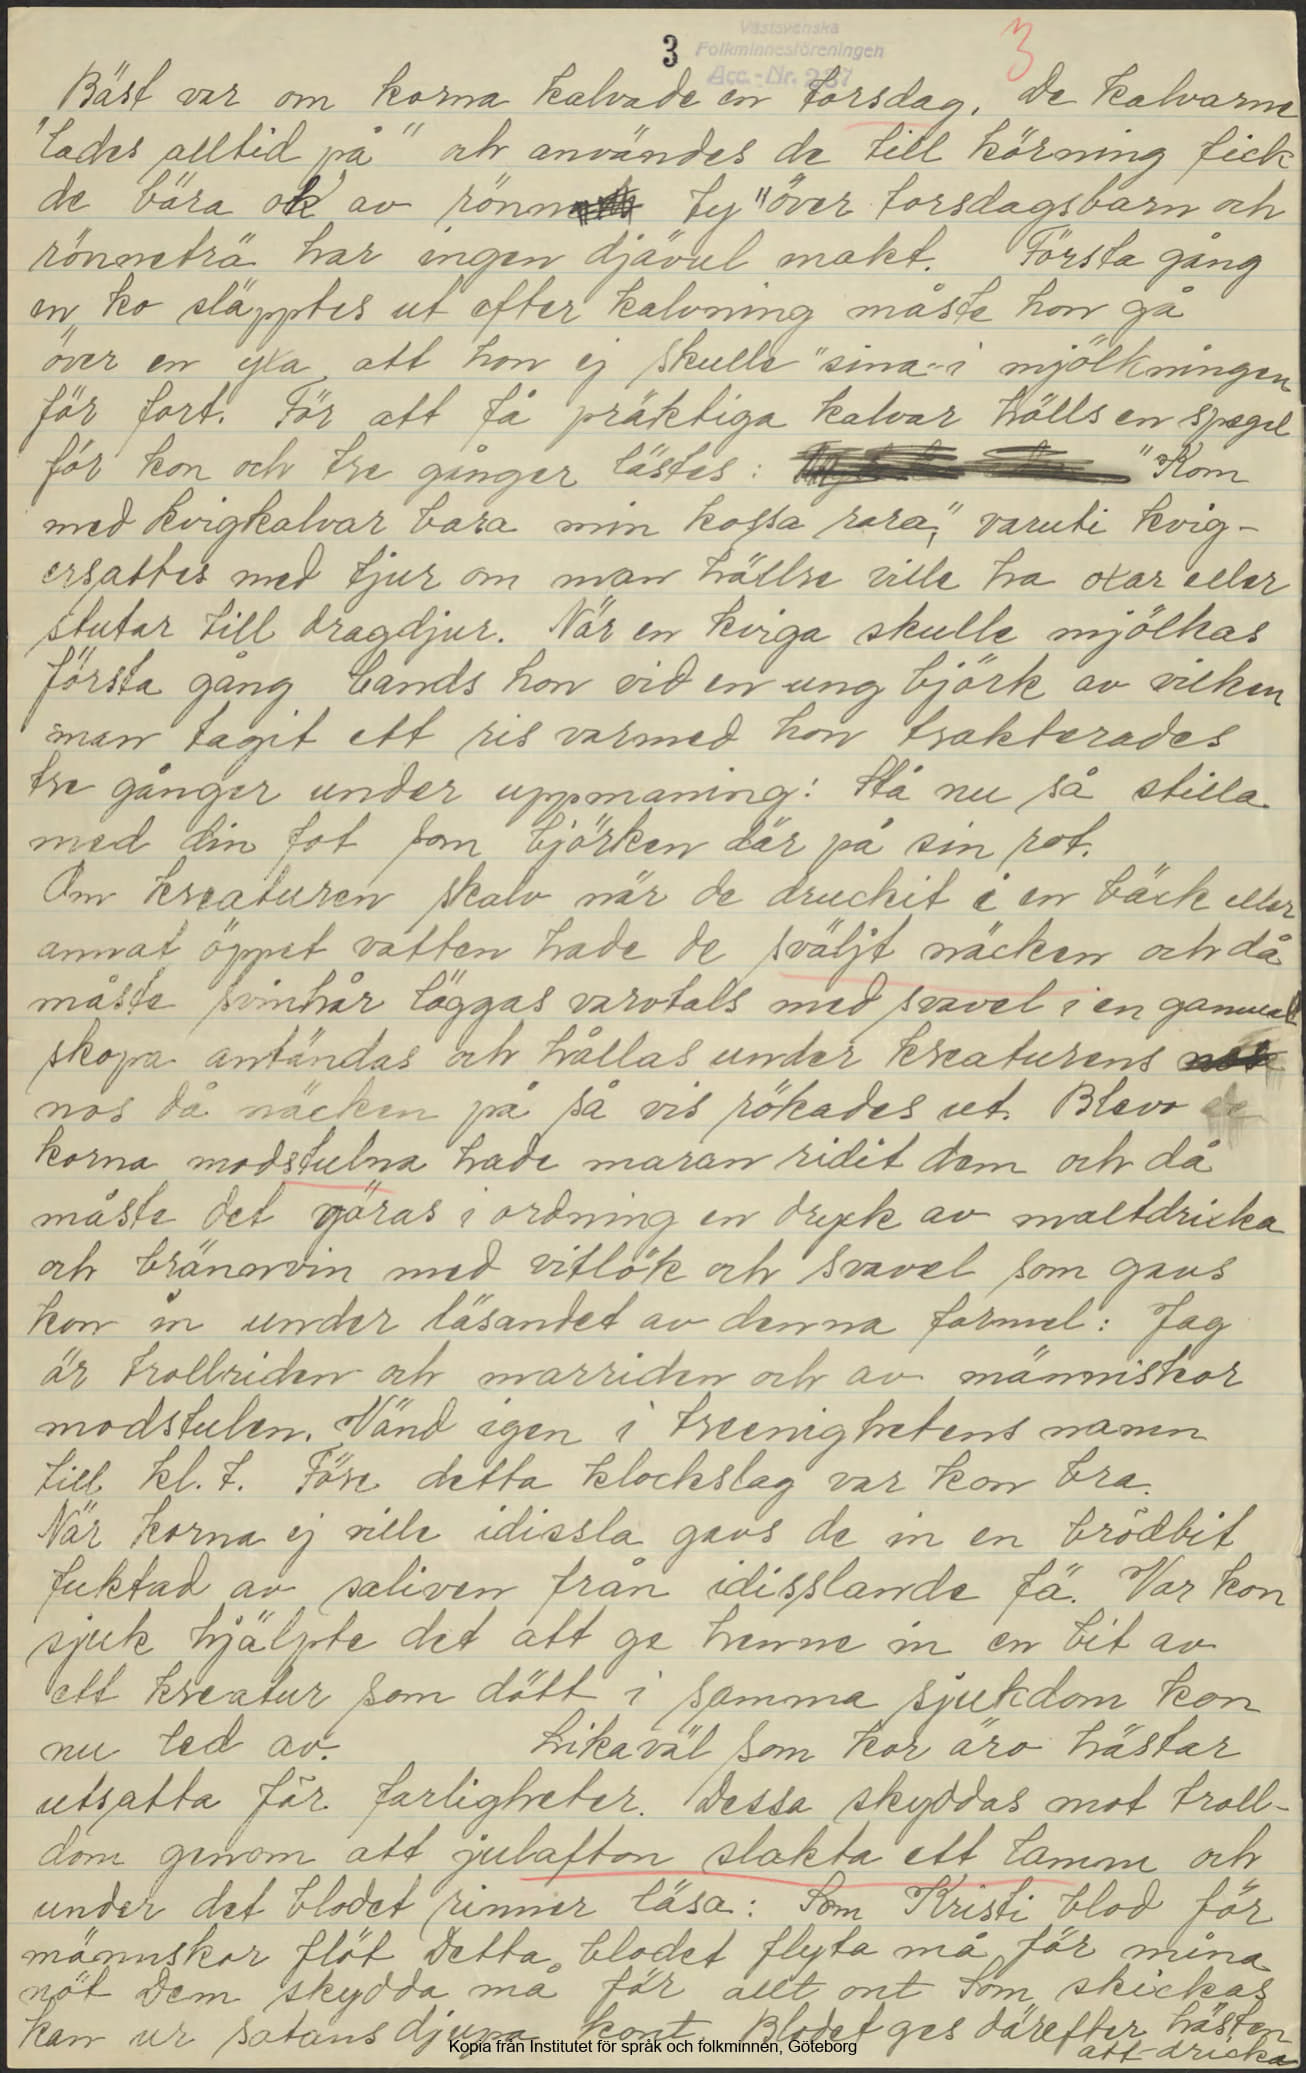 Västsvenska
Folkminnesföreningen
Acc.-Nr. 237
3
3
Bäst var om korna kalvade en torsdag. De kalvarne
"lades alltid på" och användes de till körning fick
de bära ok av rönn ty "över torsdagsbarn och
rönneträ har ingen djävul makt. Första gång
en ko släpptes ut efter kalvning måste hon gå
över en yxa att hon ej skulle "sina" i mjölkningen
för fort. För att få präktiga kalvar hölls en spegel
för kon och tre gånger lästes: "Kom
med kvigkalvar bara min kossa rara," varuti kvig-
ersattes med tjur om man hällre ville ha oxar eller
stutar till dragdjur. När en kviga skulle mjölkas
första gång bands hon vid en ung björk av vilken
man tagit ett ris varmed hon trakterades
tre gånger under uppmaning: Stå nu så stilla
med din fot som björken där på sin rot.
Om kreaturen skalv när de druckit i en bäck eller
annat öppet vatten hade de sväljt näcken och då
måste svinhår läggas varvtals med svavel i en gammal
skopa antändas och hållas under kreaturens
nos då näcken på så vis rökades ut. Blevo
korna modstulna hade maran ridit dem och då
måste det göras i ordning en dryck av maltdricka
och brännvin med vitlök och svavel som gavs
kon in under läsandet av denna formel: Jag
är trollriden och marriden och av människor
modstulen. Vänd igen i treenighetens namn
till kl. t. Före detta klockslag var kon bra.
När korna ej ville idissla gavs de in en brödbit
fuktad av saliven från idisslande fä. Var kon
sjuk hjälpte det att ge henne in en bit av
ett kreatur som dött i samma sjukdom kon
nu led av. Likaväl som kor äro hästar
utsatta för farligheter. Dessa skyddas mot troll-
dom genom att julafton slakta ett lamm och
under det blodet rinner läsa: Som Kristi blod för
männskor flöt Detta blodet flyta må för mina
nöt Dem skydda må för allt ont Som skickas
kan ur satans djupa kont Blodet ges därefter hästen
att dricka
Kopia från Institutet för språk och folkminnen, Göteborg